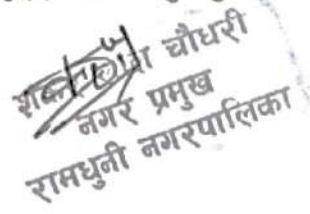 चौधरी
नगर प्रमुख
रामधुनी नगरपालिका